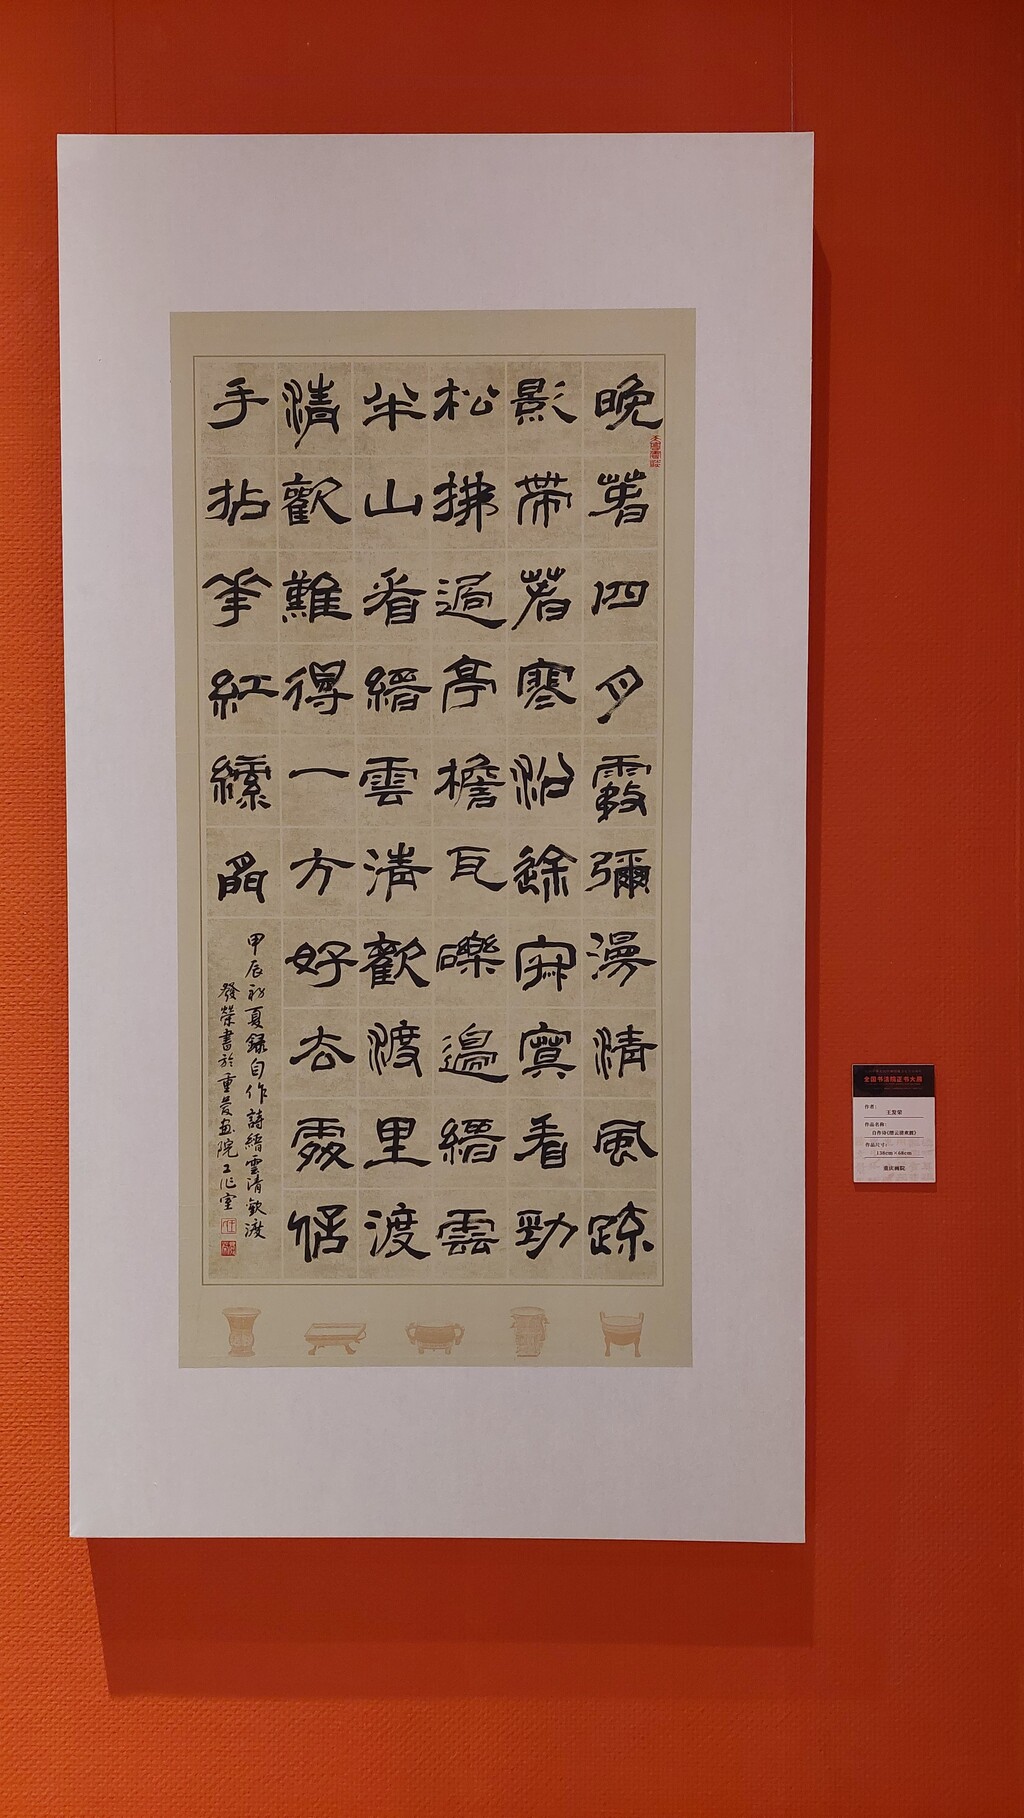 晚春四月霧彌漫清風疏
影帶著寒沿途寂寞看勁
松拂過亭檐瓦礫邊縉雲
半山看縉雲清歡渡里渡
清歡難得一方好去處偌
手拈筆紅纓
甲辰初夏録自作詩縉雲清歡渡
發榮書於重慶畫院工作室
全国书法院正书大展
作者：
王發荣
作品名称：
自作诗《缙云清欢渡》
作品尺寸：
138cm×68cm
重庆画院